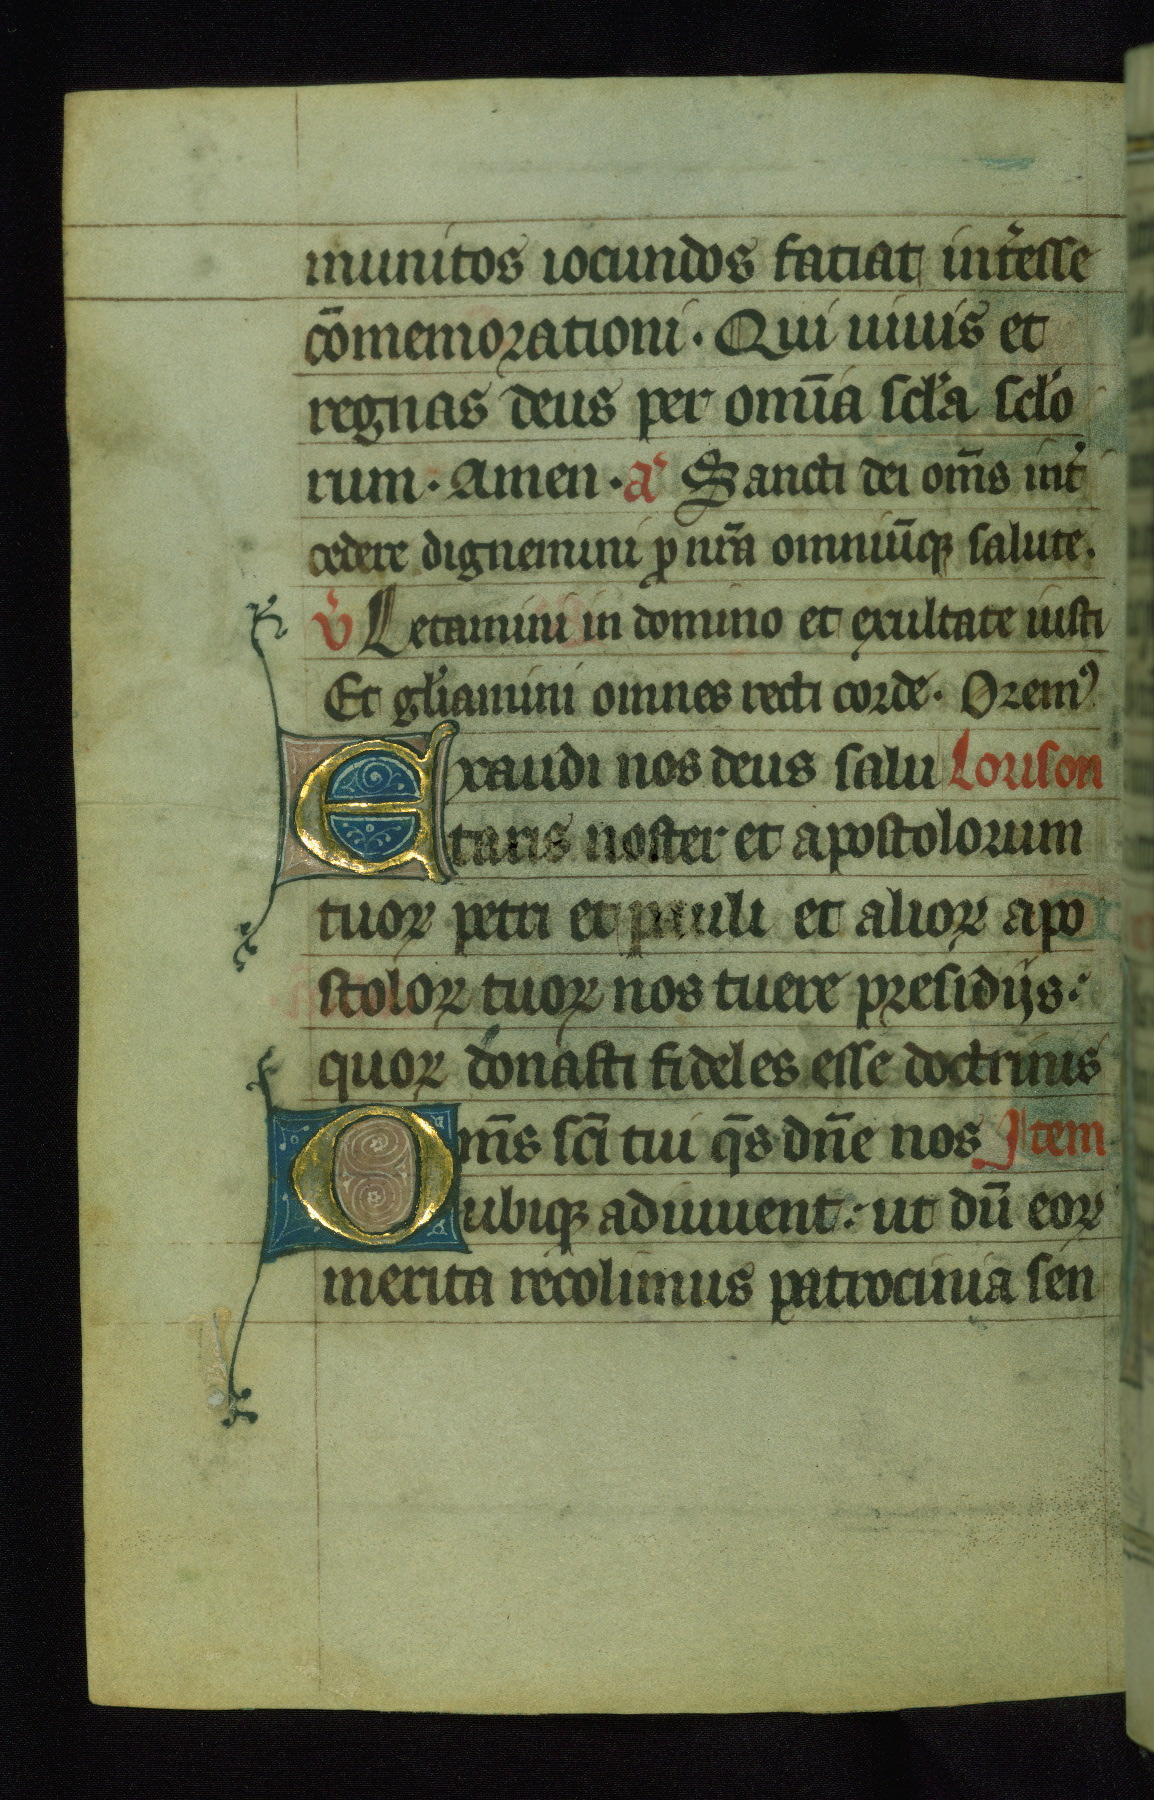 munitos iocundos faciat int̾esse
cōmemorationi. Qui uiuis et
regnas deus per omīa scl̾a scl̾o
rum. Amen. a͛ Sancti dei om̄s int̾
cedere dignemini ꝓ nr̄a omniūqꝫ salute.
v̾ Letamini in domino et exultate iusti
Et gl̾iamini omnes recti corde. Oremꝰ
Exaudi nos deus salu Lorison
taris noster et apostolorum
tuoꝝ petri et pauli et alioꝝ apo
stoloꝝ tuoꝝ nos tuere presidijs:
quoꝝ donasti fideles esse doctrinis
Om̄s sc̄i tui q̄s dn̄e nos Item
ubiqꝫ adiuuent: ut dū eoꝝ
merita recolimus patrocinia sen